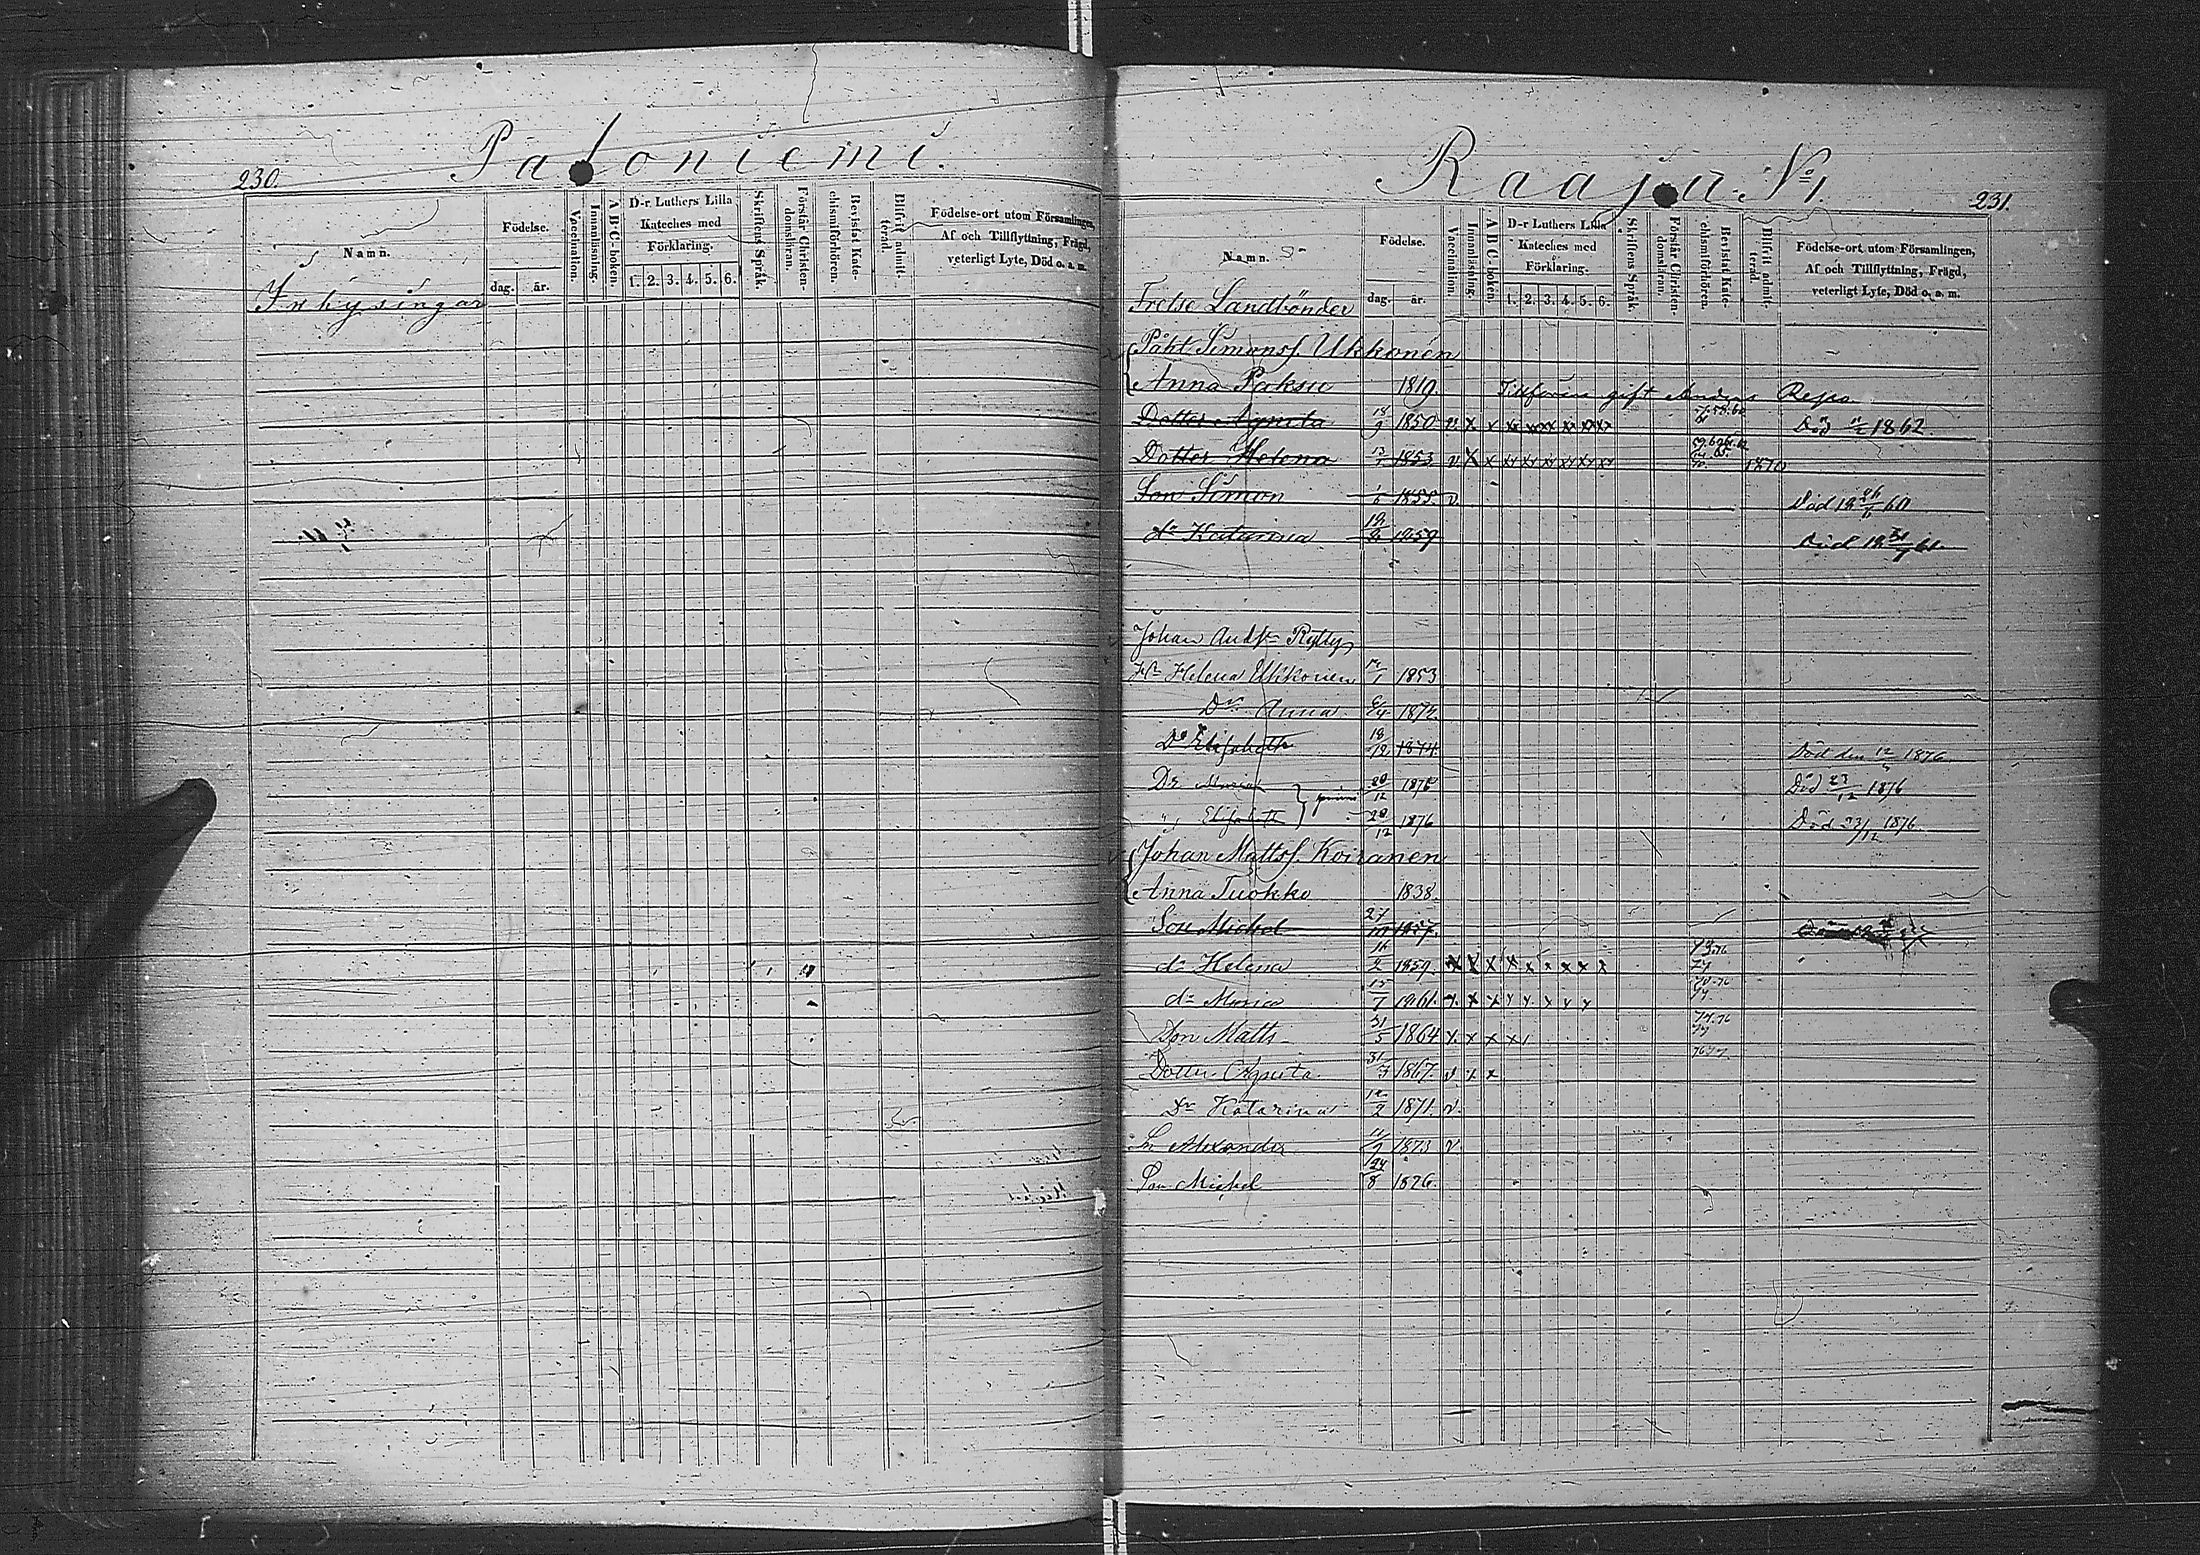 230.
Pajoniemi.
Namn.
Födelse.
dag.
år.
Vaccination.
Innanläsning.
ABC-boken.
D-r. Luthers Lilla
Kateches med
Förklaring.
1. 2. 3. 4. 5. 6.
Skriftens Språk.
Förstår Christen-
domsläran.
Bevistat Kate-
chismiförhören.
Blifvit admit-
terad.
Födelse-ort utom Församlingen,
Af och Tillflyttning, Frägd,
veterligt Lyte, Död o. a. m.
Inhysingar
Raaja N:o 1.
231.
Namn.
Födelse.
dag.
år.
Vaccination.
Innanläsning.
ABC-boken.
D-r Luthers Lilla
Kateches med
Förklaring.
1. 2. 3. 4. 5. 6.
Skriftens Språk.
Förstår Christen-
domsläran.
Bevistat Kate-
chismiförhören.
Blifvit admit-
terad.
Födelse-ort utom Församlingen,
Af och Tillflyttning, Frägd,
veterligt Lyte, Död o. a. m.
Frelse Landbönder
Påhl Simonss. Ukkonen
Anna Paksu 1819. Tillförene gift Anders Repo
Dotter Agneta 18/9 1850 v x x xx xxx x xx xx Död 1862.
Dotter Helena 1853 v x x xx xx xx xx xx xx 1870
Son Simon 1/6 1855. v. Död 18 26/6 60
d:o Katarina 1859 Död 18 31/7 61.
Johan And:sn Rytty
H:u Helena Ukkonen 1853
D:r Anna 1872.
D:o Elisabeth 18/12 1874 Död den 1876
D:r Maria 20/12 1876 Död 23/12 1876
" Elisabeth 20/12 1876 Död 23/12 1876.
Johan Mattss. Koiranen
Anna Tuokko 1838.
Son Michel 27/10 1857.
d:o Helena 16/2 1859. x x x x x x x x x
d:o Maria 15/7 1861. v. x x x x x x x
Son Matts 31/5 1864 v. x x x
Dotter Agneta 31/7 1867. v x x
D:r Katarina 12/2 1871. v.
Sn Alexander 11/9 1873 v.
Son Michel 24/8 1876.